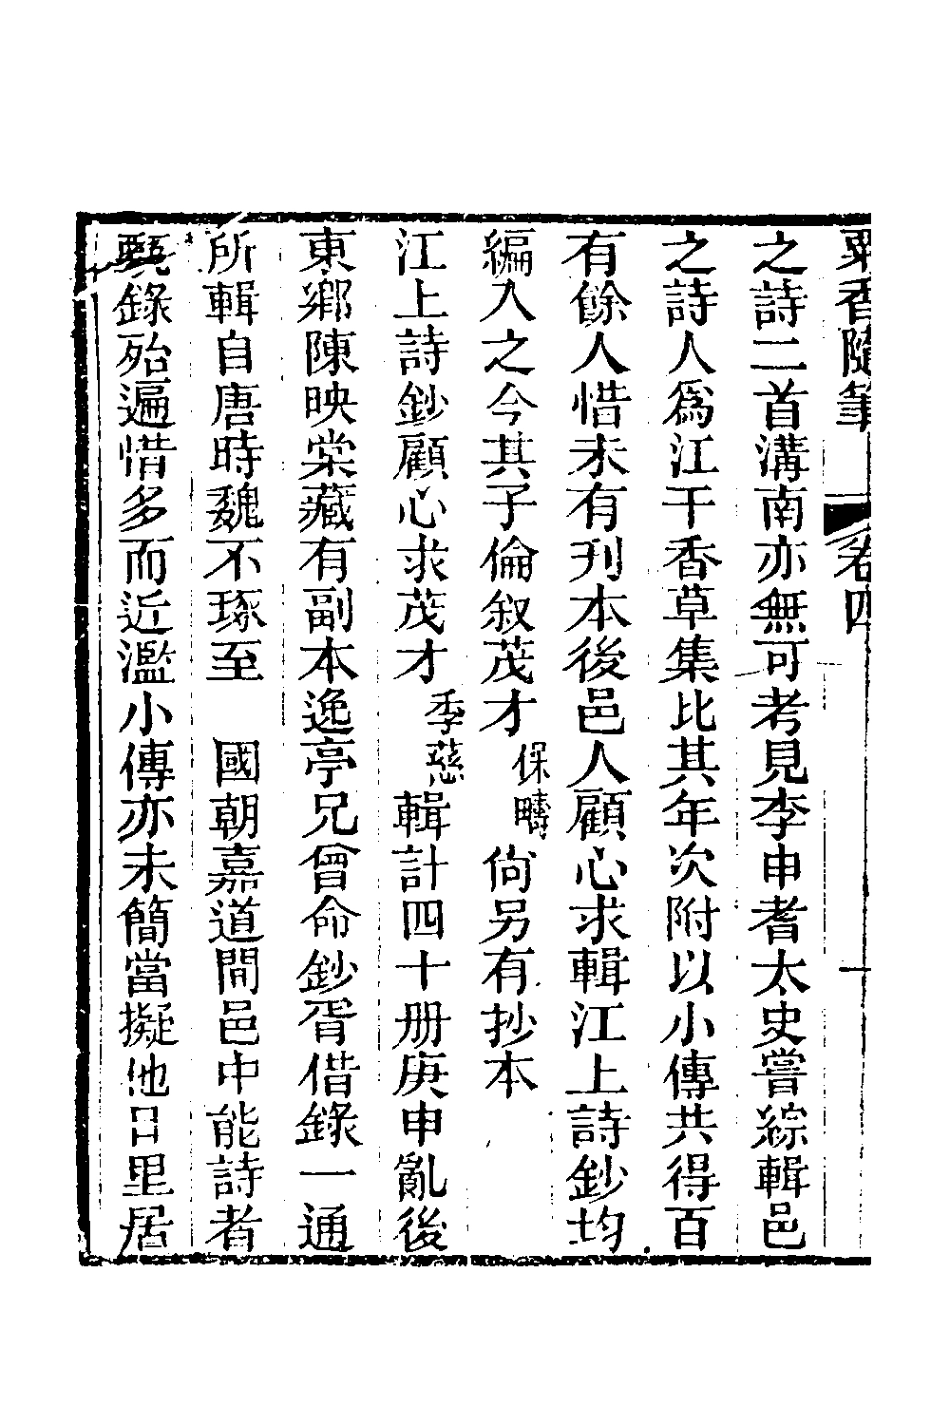 粟香隨筆 卷四 一
之詩二首溝南亦無可考見李申耆太史嘗綜輯邑
之詩人爲江干香草集比其年次附以小傳共得百
有餘人惜未有刋本後邑人顧心求輯江上詩鈔均
編入之今其子倫叙茂才保疇尙另有抄本
江上詩鈔顧心求茂才季慈輯計四十册庚申亂後
東鄉陳映棠藏有副本逸亭兄曾命鈔胥借錄一通
所輯自唐時魏不琢至 國朝嘉道間邑中能詩者
甄錄殆遍惜多而近濫小傳亦未簡當擬他日里居